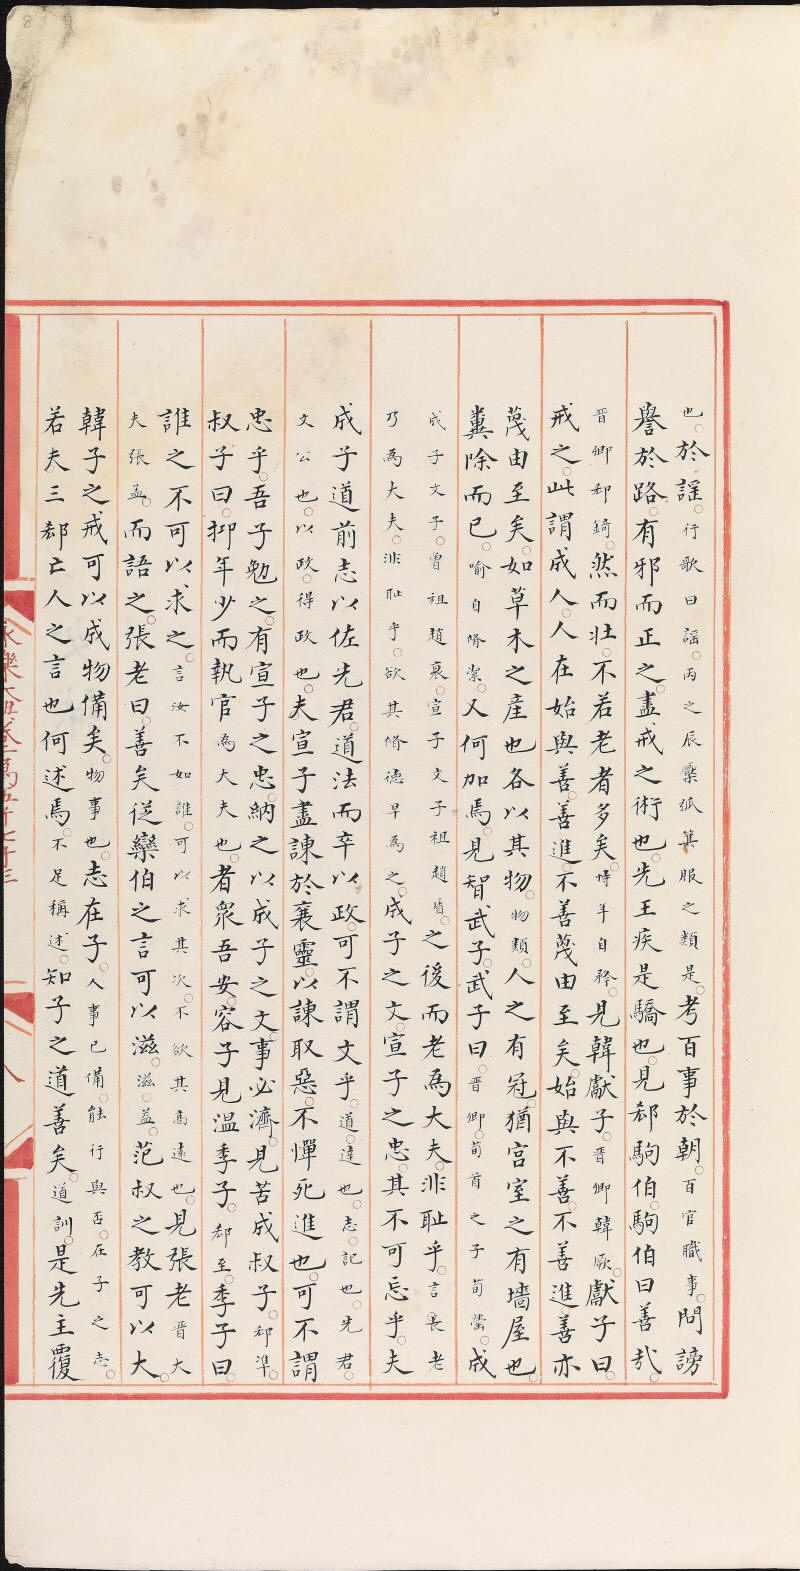 也。於謡。行歌曰謡。丙之辰檿弧箕服之類是。考百事於朝。百官職事。問謗
譽於路。有邪而正之。盡戒之術也。先王疾是驕也。見郄駒伯。駒伯曰善哉。
晋卿郄錡。然而壮。不若老者多矣。恃年自矜。見韓獻子。晋卿韓厥。獻子曰。
戒之。此謂成人。人在始與善。善進。不善蔑由至矣。始與不善。不善進。善亦
蔑由至矣。如草木之産也各以其物。物類。人之有冠。猶宫室之有墻屋也。
糞除而已。喻自脩潔。又何加焉。見智武子。武子曰。晋卿。荀首之子荀罃。成
成子文子。曾祖趙衰。宣子文子祖趙盾。之後而老為大夫。非耻乎。言長老
乃為大夫。非耻乎。欲其脩德早為之。成子之文。宣子之忠。其不可忘乎。夫
成子道前志以佐先君。道法而卒以政。可不謂文乎。道。達也。志。記也。先君。
文公也。以政。得政也。夫宣子盡諫於襄靈。以諫取惡。不憚死進也。可不謂
忠乎。吾子勉之。有宣子之忠。納之以成子之文。事必濟。見苦成叔子。郄犨。
叔子曰。抑年少而執官為大夫也。者衆吾安。容子見温季子。郄至。季子曰。
誰之不可以求之。言汝不如誰。可以求其次。不欲其高遠也。見張老晋大
夫張孟。而語之。張老曰。善矣從欒伯之言可以滋。滋。益。范叔之教可以大。
韓子之戒可以成物備矣。物事也。志在子。人事已備。能行與否。在子之志。
若夫三郄亡人之言也何述焉。不足稱述。知子之道善矣。道訓。是先主覆
永樂大典卷二萬五百七十三
八
8